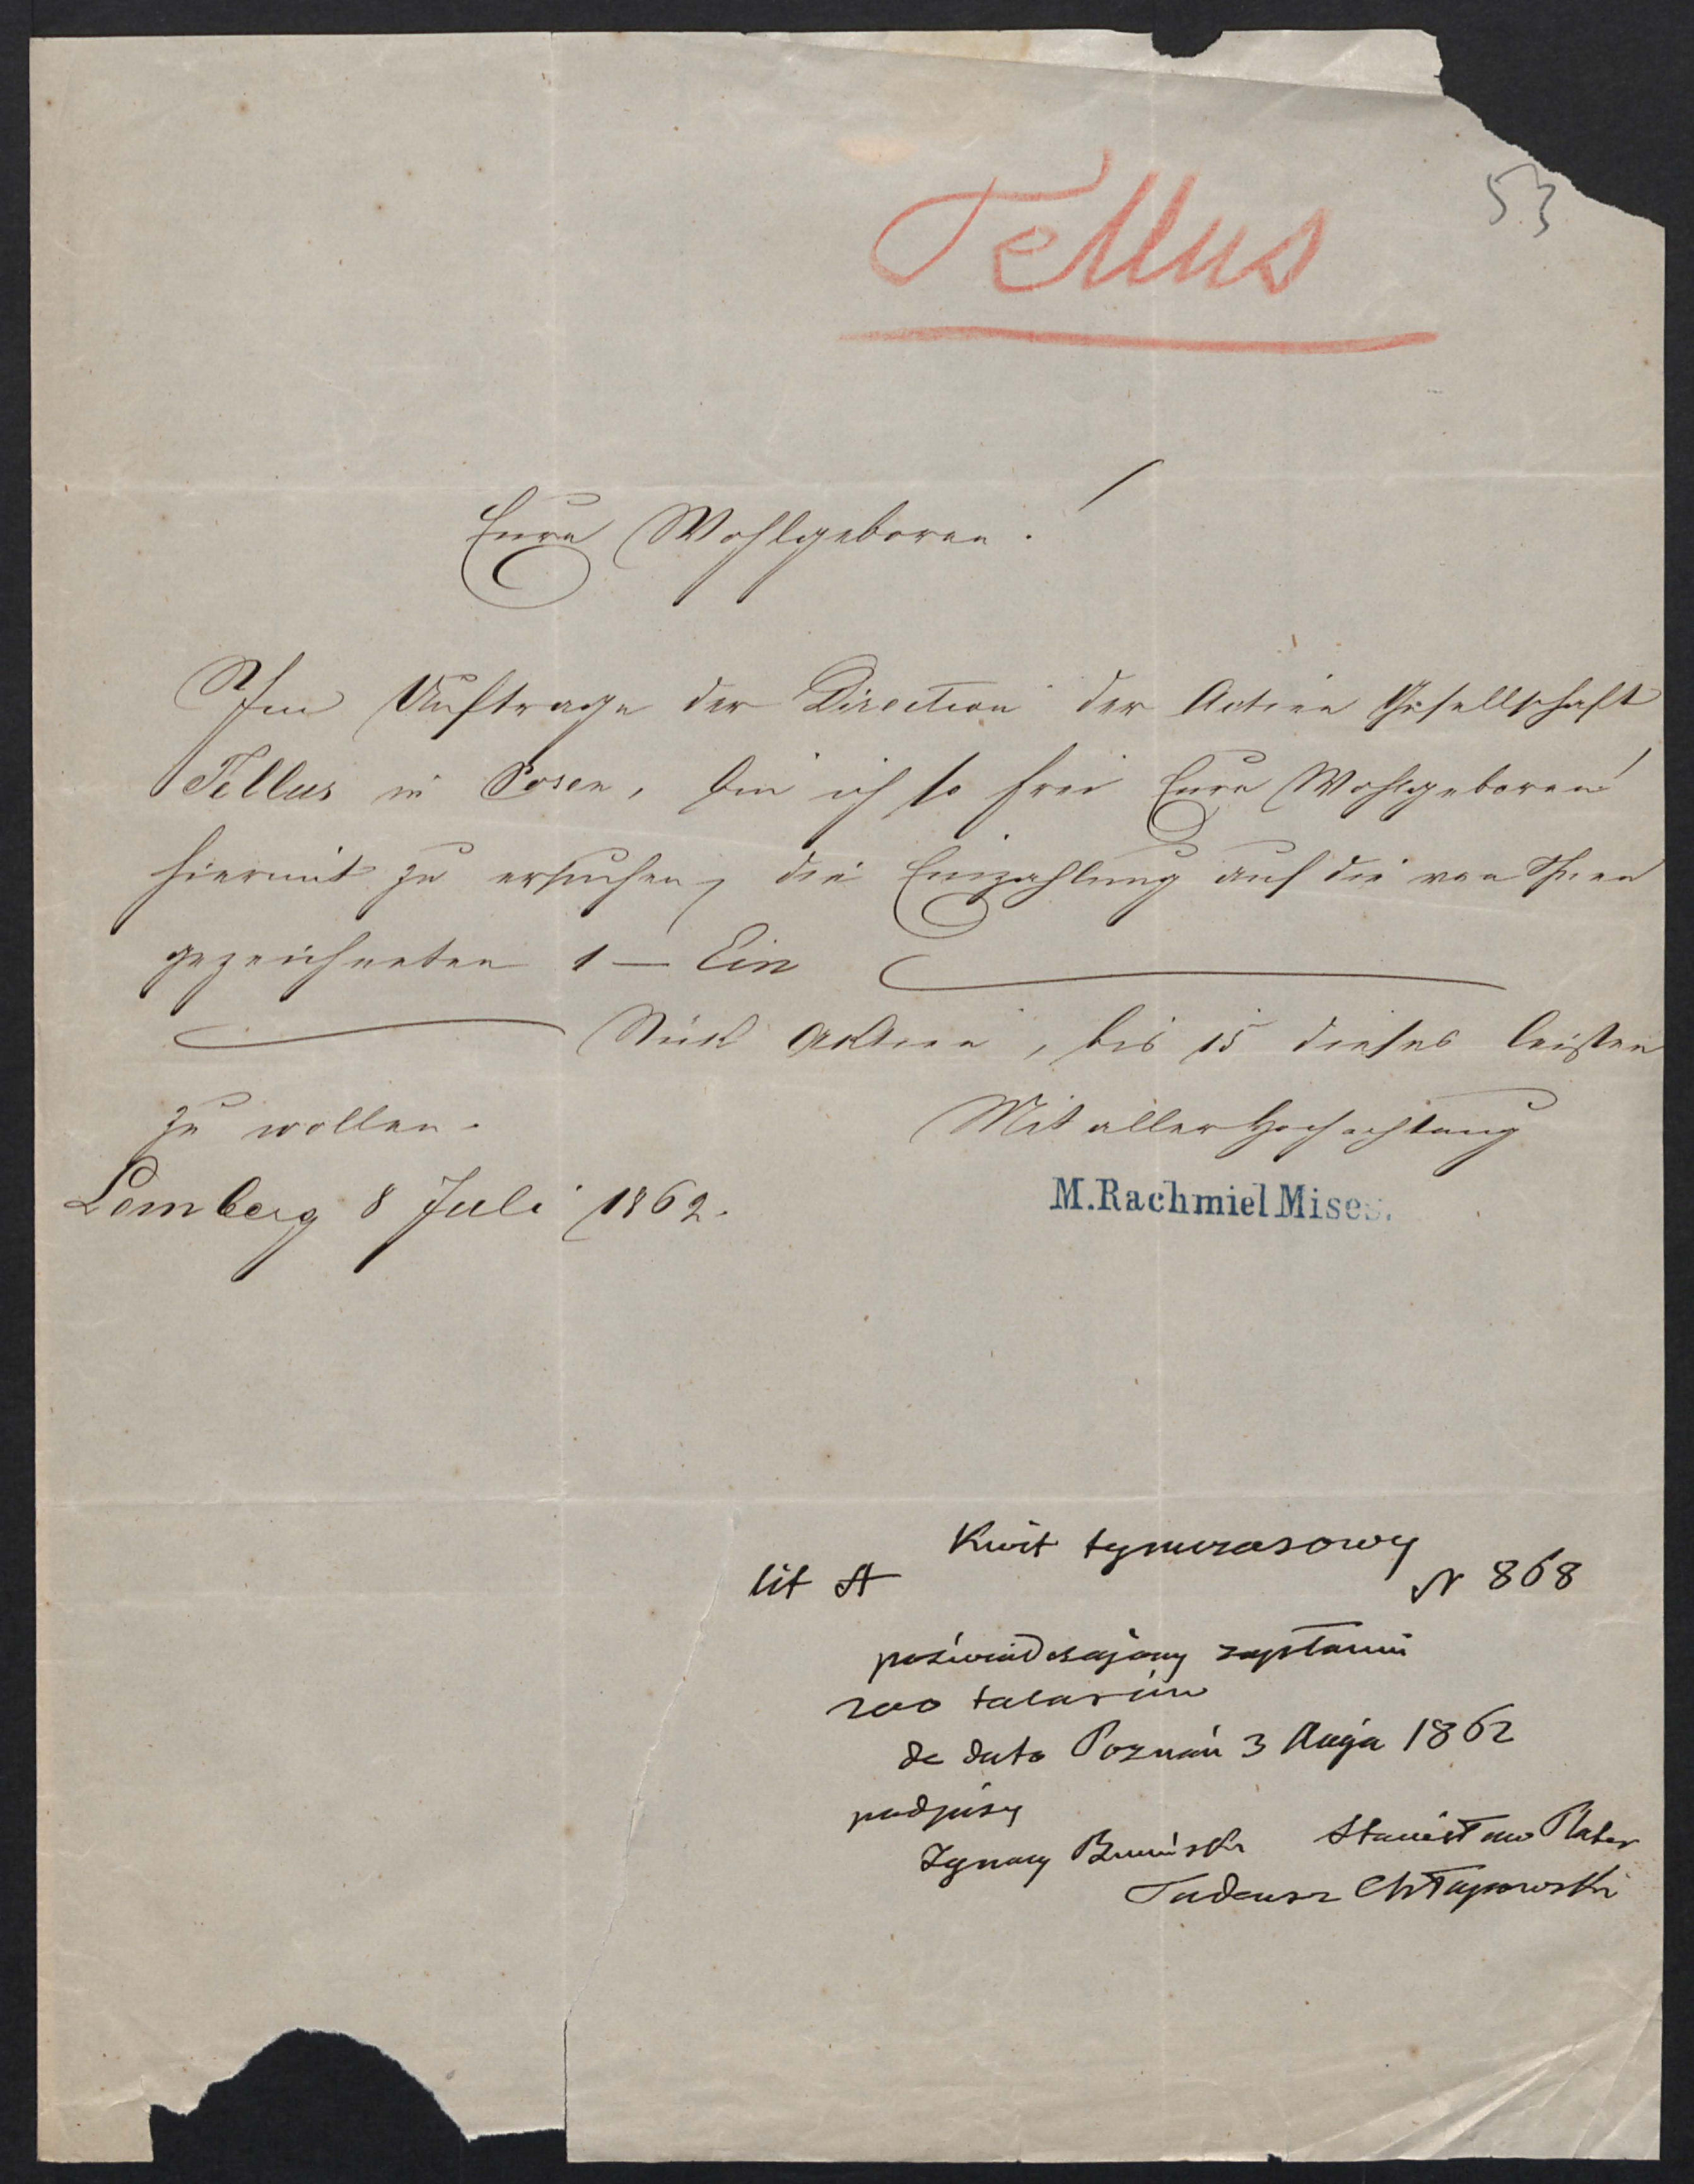 Tellus
53
Eure Wohlgeboren!
Im Auftrage der Direction der Actien Gesellschaft
Tellus in Posen, bin ich so frei Eure Wohlgeboren
hiermit zu ersuchen, die Einzahlung auf die von Ihnen
gezeichneten 1 — Ein
Stück Aktien, bis 15 dieses leisten
zu wollen.
Mit aller Hochachtung
Lemberg 8 Juli 1862.
M. Rachmiel Mises.
Kwit tymczasowy
lit A N 868
poświadczający zapłacenie
200 talarów
de dato Poznań 3 Maja 1862
podpisy
Ignacy Bniński Stanisław Plater
Tadeusz Chłapowski